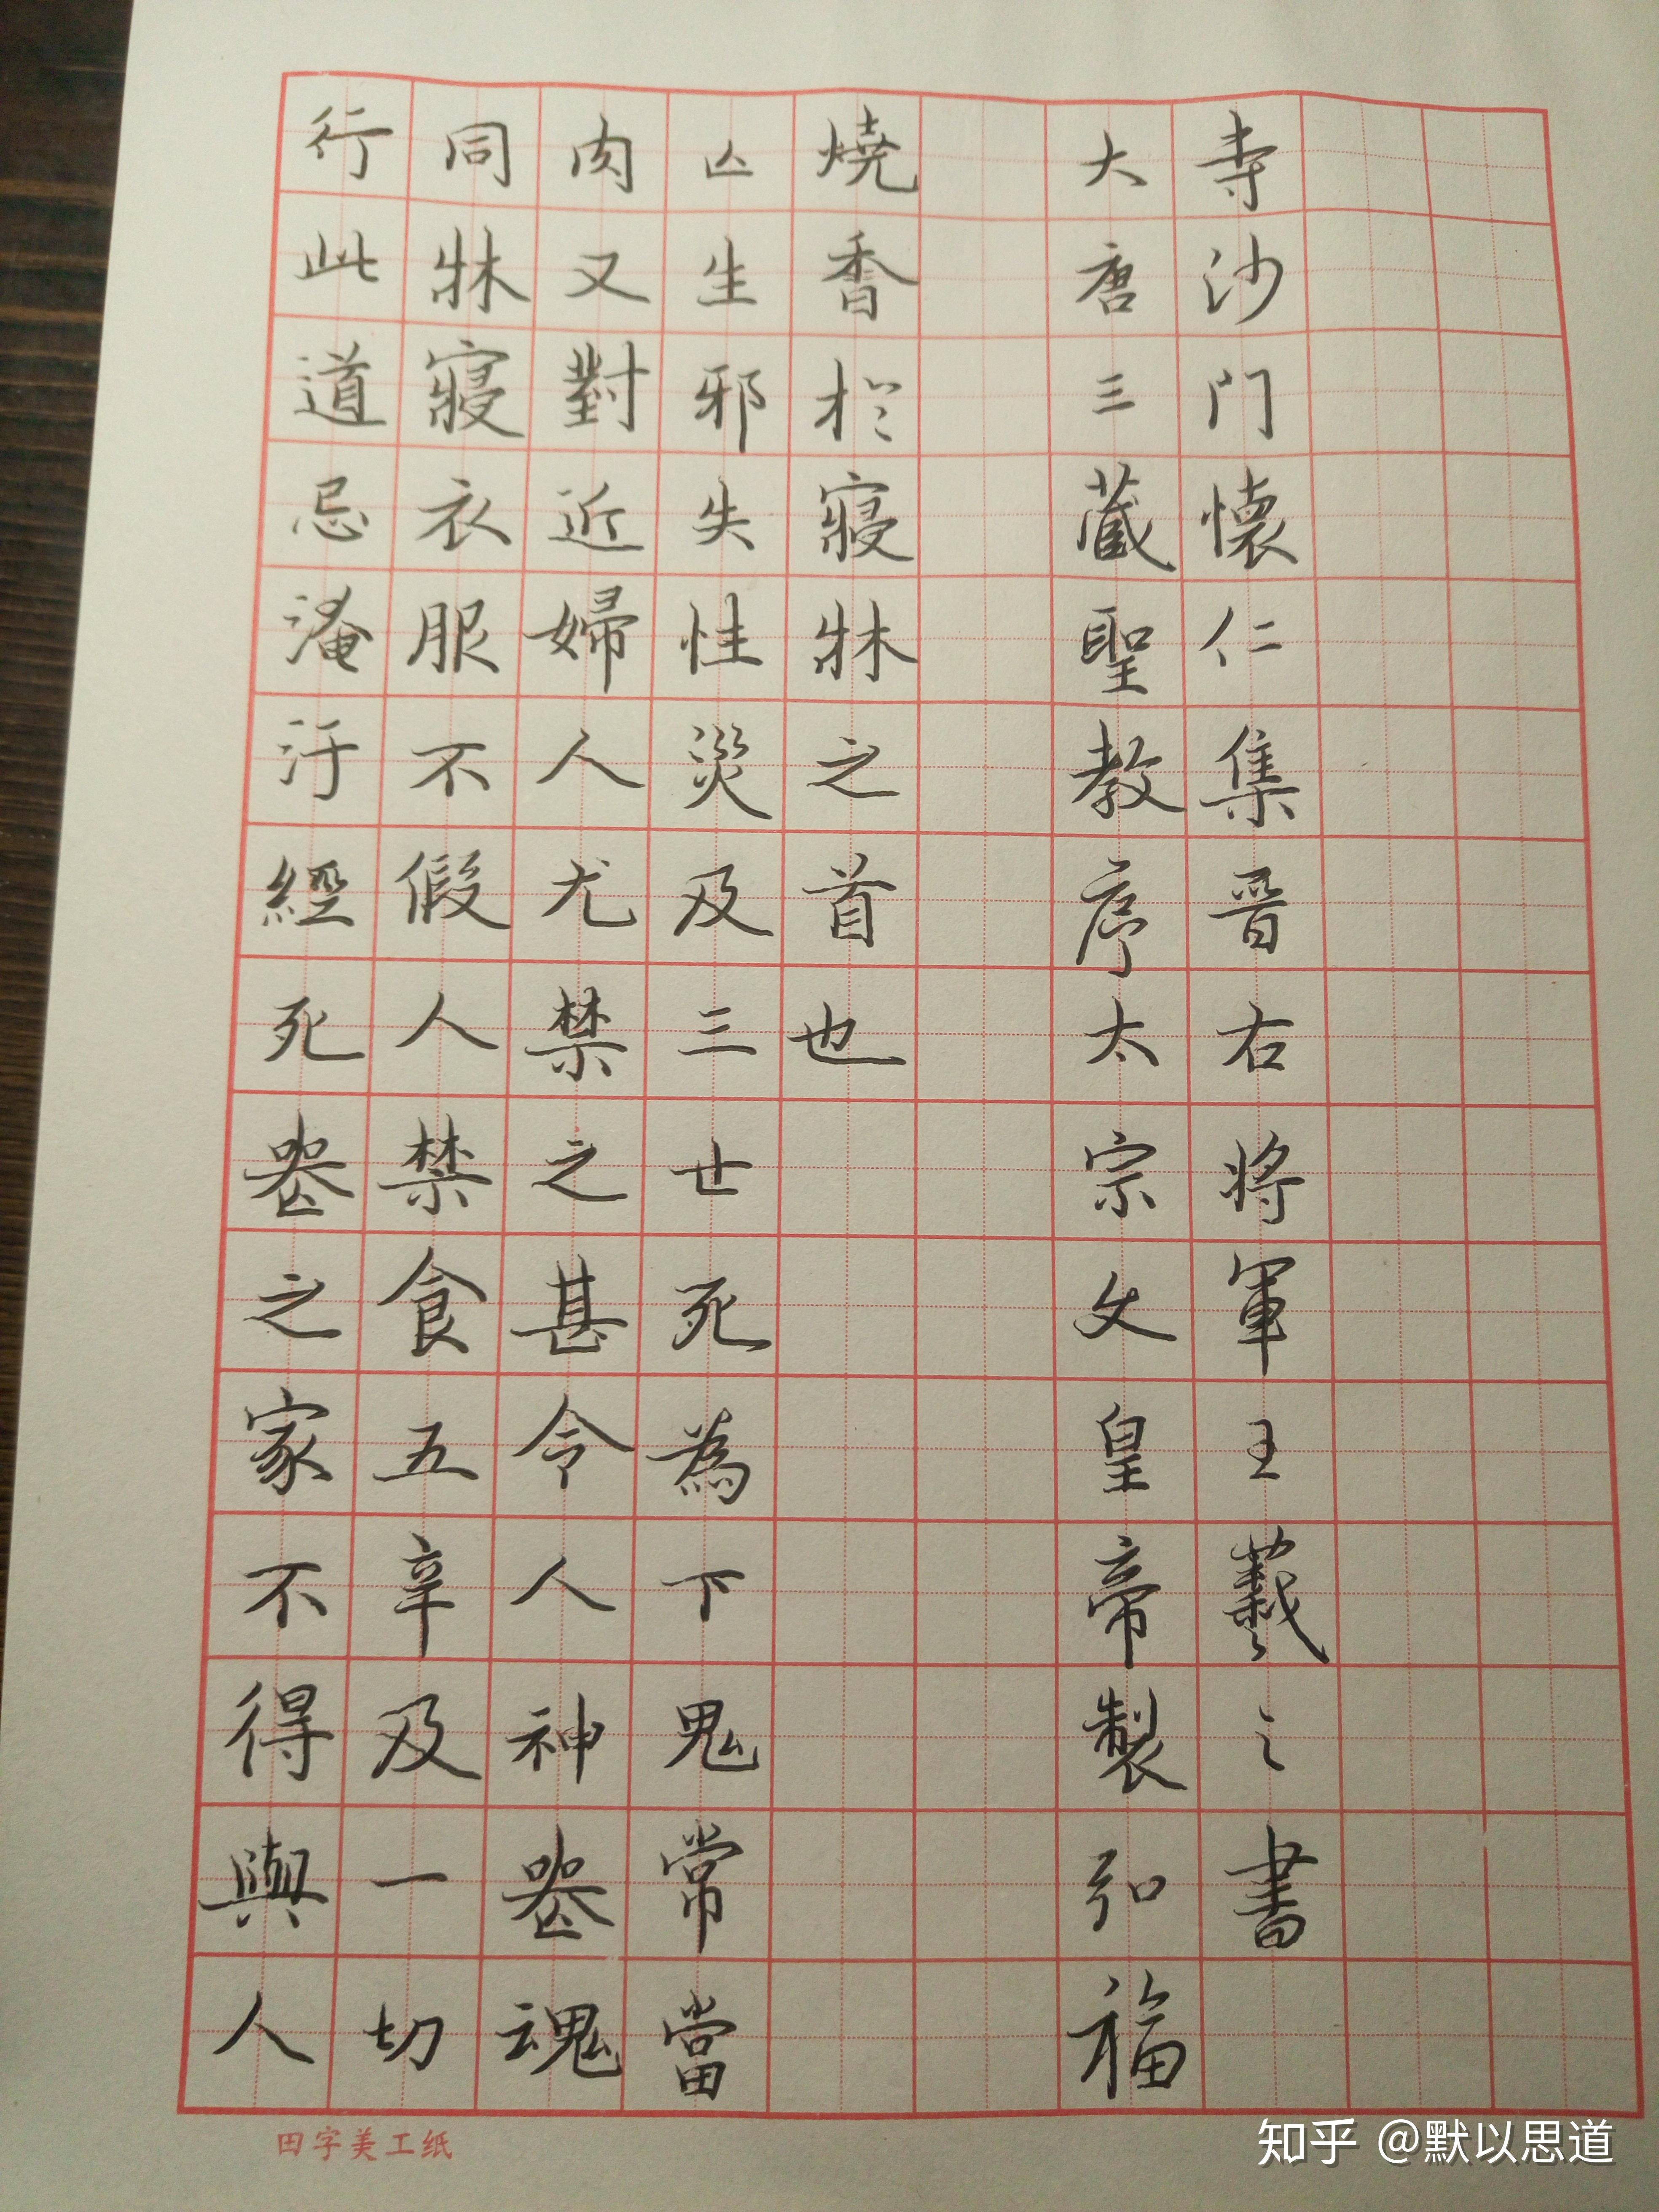 行此道忌淹汙經死喪之家不得與人
同牀寢衣服不假人禁食五辛及一切
肉又對近婦人尤禁之甚令人神喪魂
亾生邪失性災及三世死為下鬼常當
燒香於寢牀之首也
大唐三藏聖教序太宗文皇帝製弘福
寺沙门懷仁集晉右將軍王羲之書
田字美工纸
知乎 @默以思道